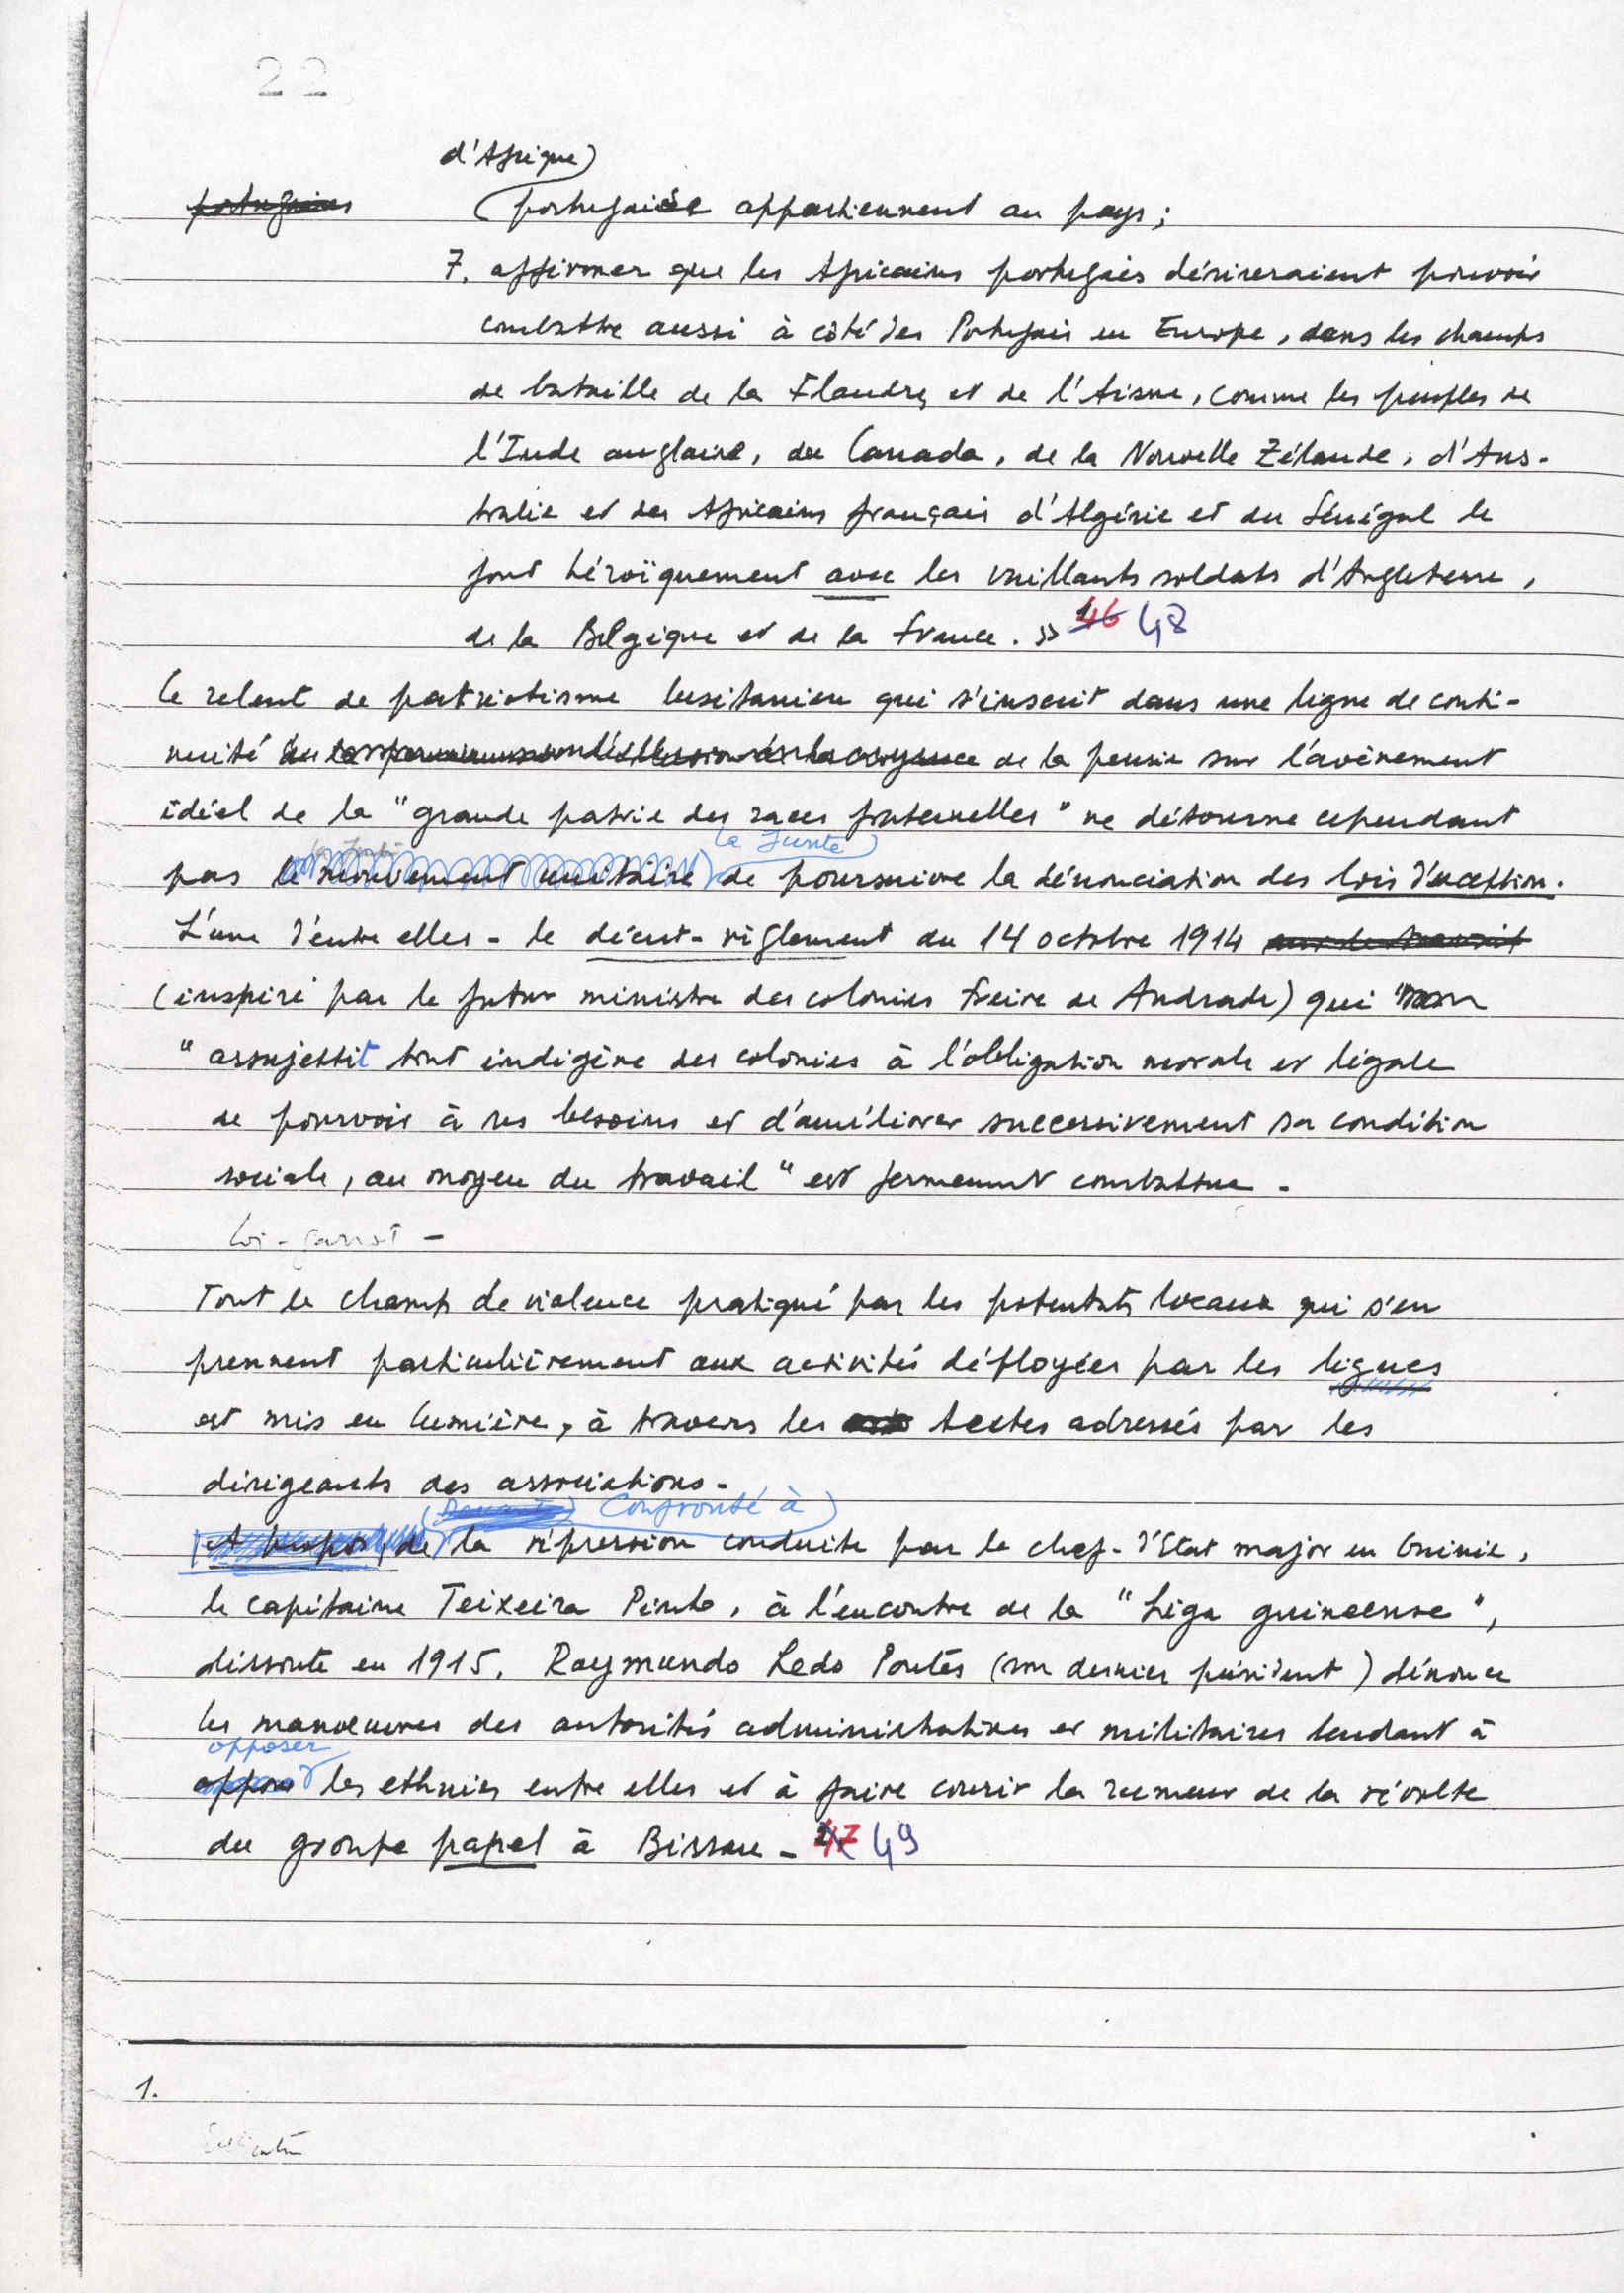 22
d'Afrique)
portugaise appartiennent au pays ;
7. affirmer que les Africains portugais désireraient pouvoir
combattre aussi à côté des Portugais en Europe, dans les champs
de bataille de la Flandre et de l'Aisne, comme les peuples de
l'Inde anglaise, du Canada, de la Nouvelle Zélande, d'Aus-
tralie et des Africains français d'Algérie et du Sénégal le
font héroïquement avec les vaillants soldats d'Angleterre,
de la Belgique et de la France. » 46 48
Ce relent de patriotisme lusitanien qui s'inscrit dans une ligne de conti-
nuité de la pensée sur l'avènement
idéel de la "grande patrie des races fraternelles" ne détourne cependant
la Junte
pas le mouvement unitaire de poursuivre la dénonciation des lois d'exception.
L'une d'entre elles - le décret-règlement du 14 octobre 1914
(inspiré par le futur ministre des colonies Freire de Andrade) qui
"assujettit tout indigène des colonies à l'obligation morale et légale
de pourvoir à ses besoins et d'améliorer successivement sa condition
sociale, au moyen du travail" est fermement combattue -
Loi-garrot -
Tout le champ de violence pratiqué par les potentats locaux qui s'en
prennent particulièrement aux activités déployées par les ligues
est mis en lumière, à travers les textes adressés par les
dirigeants des associations -
Confronté à
A propos de la répression conduite par le chef-d'Etat major en Guinée,
le capitaine Teixeira Pinto, à l'encontre de la "Liga guineense",
dissoute en 1915, Raymundo Ledo Pontes (son dernier président) dénonce
les manoeuvres des autorités administratives et militaires tendant à
opposer
les ethnies entre elles et à faire courir la rumeur de la révolte
du groupe papel à Bissau - 47 49
1.